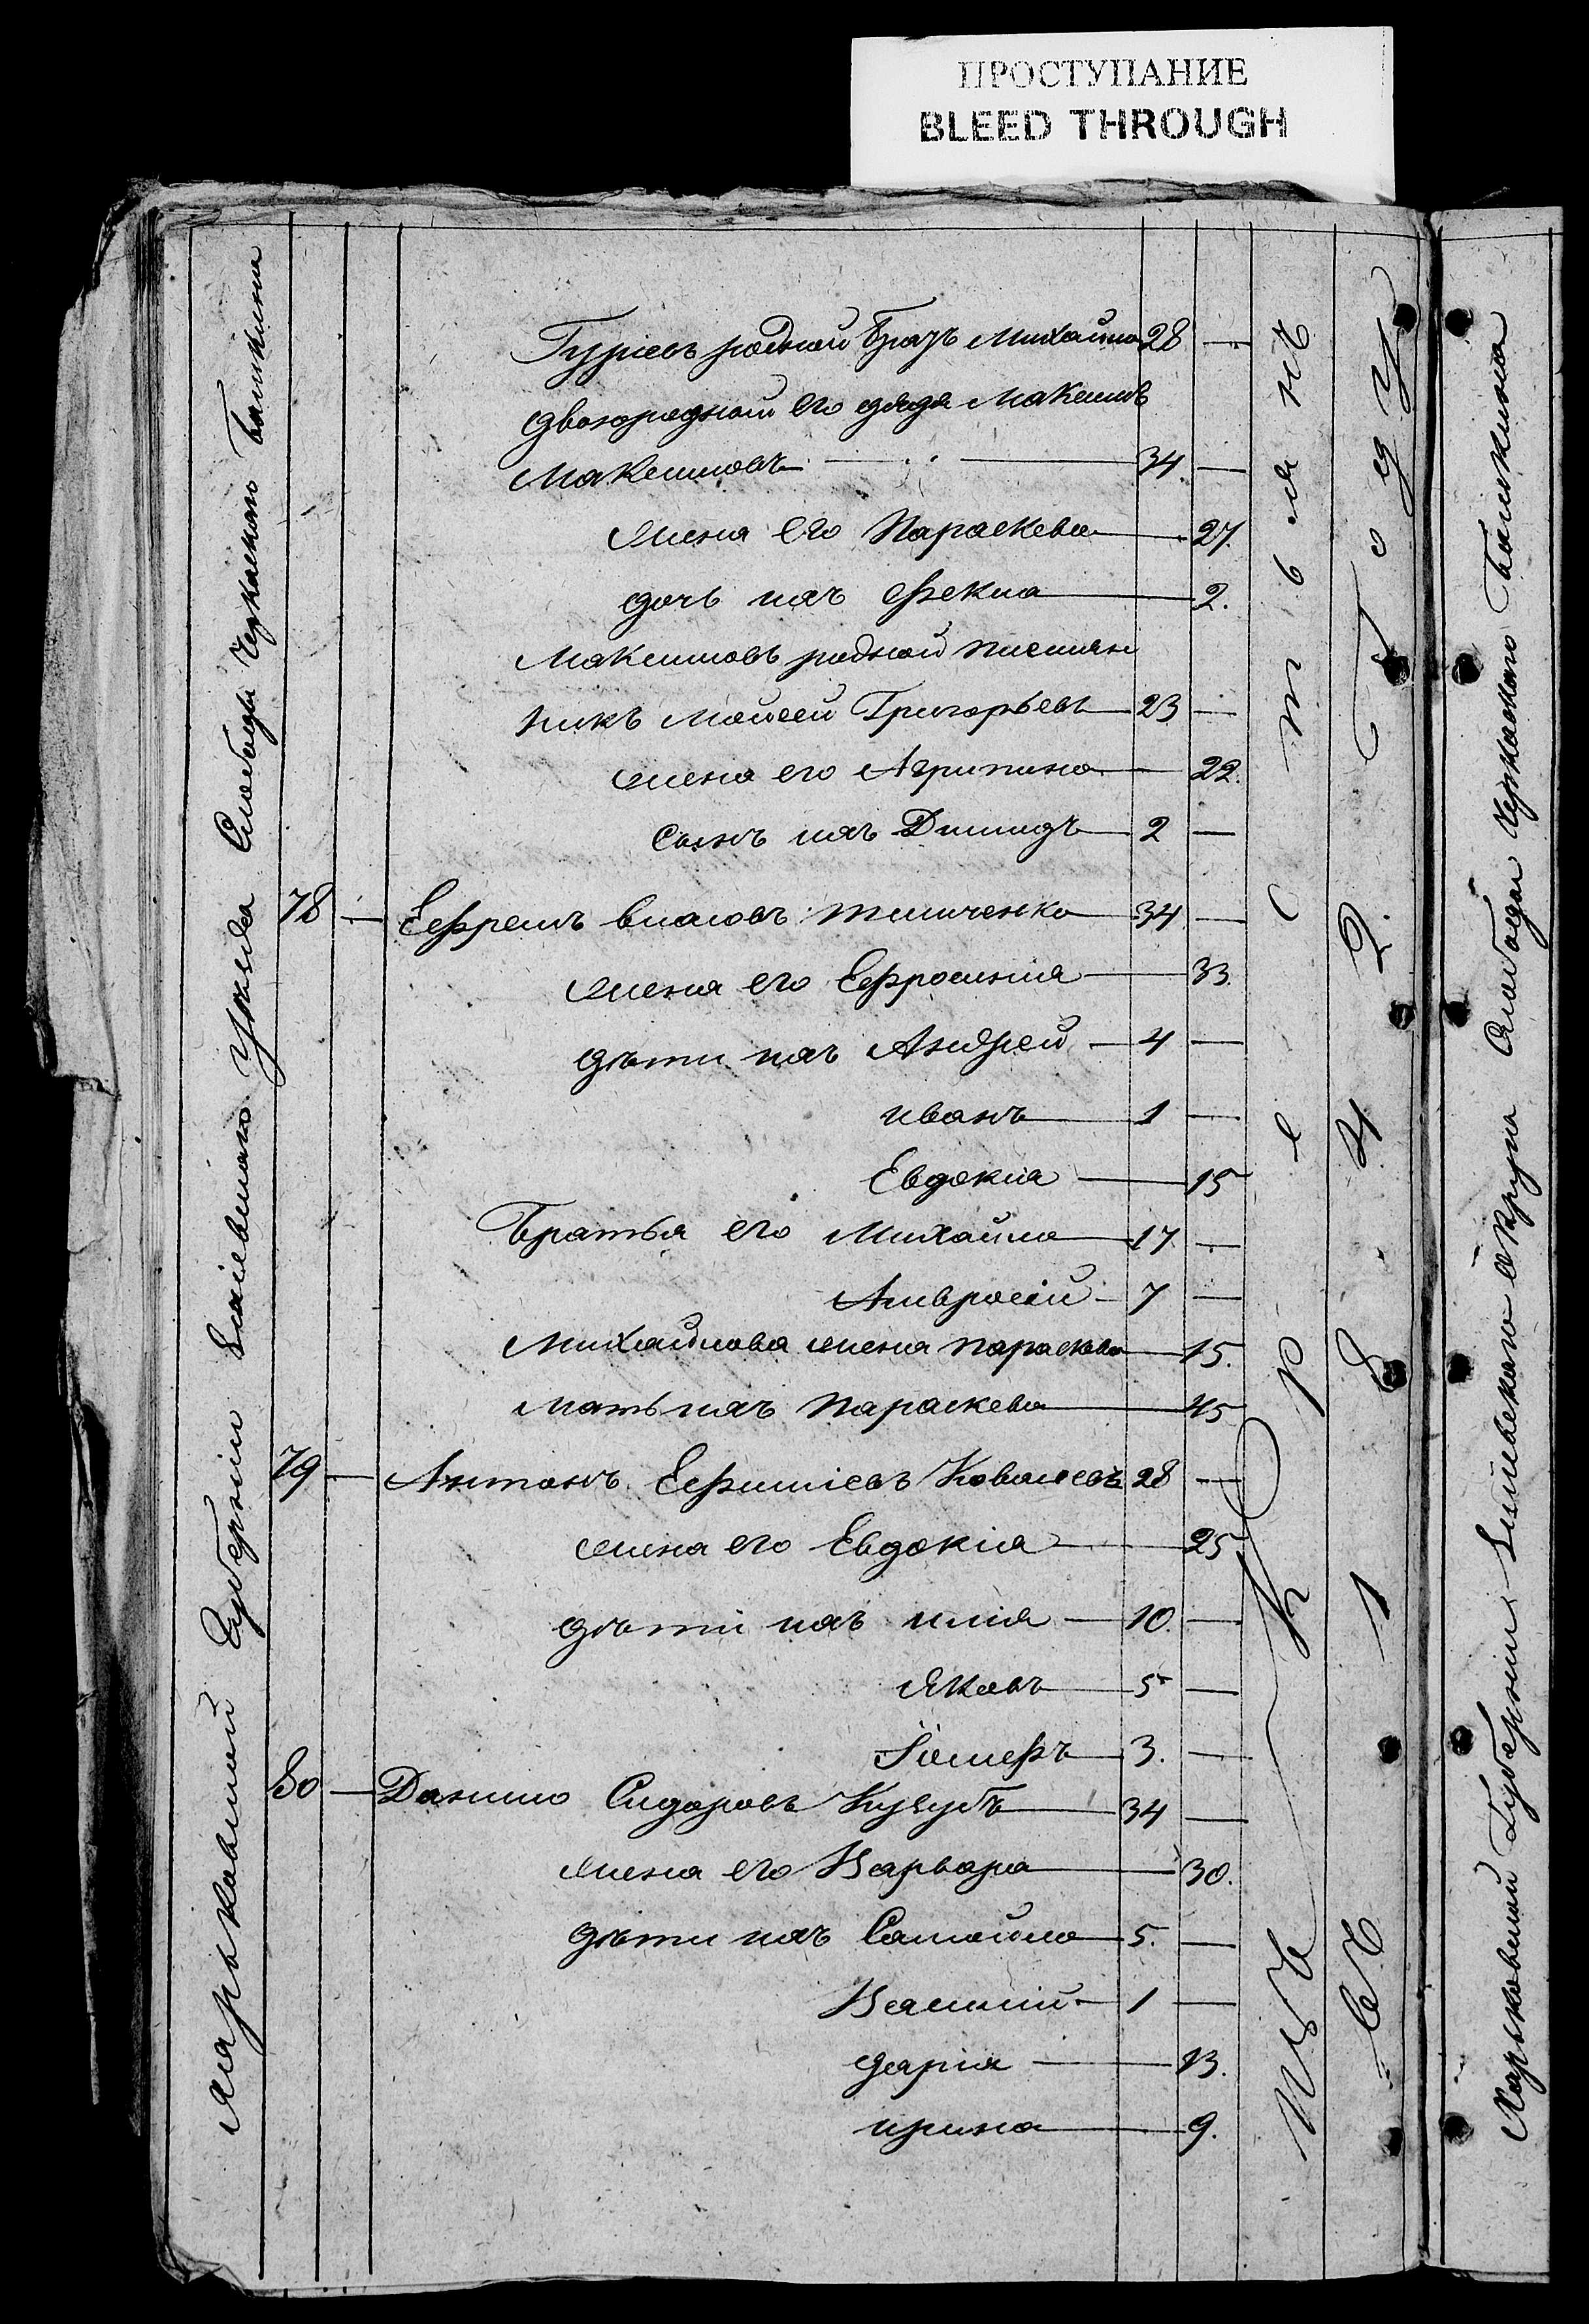 ПРОСТУПАНИЕ
BLEED THROUGH
Харьковской Губерніи Зміевскаго Уѣзда Слободы Черкаскаго Бишкина
Гуріевъ родной братъ Михайло 28 —
двоюродной его дядя Максимъ
Максимовъ — 34. —
жена его Параскева — 27.
дочь ихъ Фекла — 2.
Максимовъ родной племян
никъ Моисей Григорьевъ — 23 —
жена его Агрипина — 22.
сынъ ихъ Димидъ — 2 —
78 — Ефремъ Власовъ — 34 —
жена его Ефросинія — 33.
дѣти ихъ Андрей — 4 —
иванъ — 1 —
Евдокіа — 15
Братья его Михайло — 17 —
Амвросій — 7 —
Михайлова жена параскева — 15.
Мать ихъ Параскева — 45
79 — Антонъ Ефиміевъ Ковалевъ 28 —
жена его Евдокіа — 25
дѣти ихъ илія — 10. —
Яковъ — 5 —
Іосифъ — 3. —
80 — Данило Сидоровъ — 34 —
жена его Варвара — 30.
дѣти ихъ Самойло — 5. —
Василій — 1 —
дарія — 13.
ирина — 9.
изъ крестьянъ
въ 1842. Году
Харьковской Губерніи Зміевскаго округа Слободы Черкаскаго Бишкина